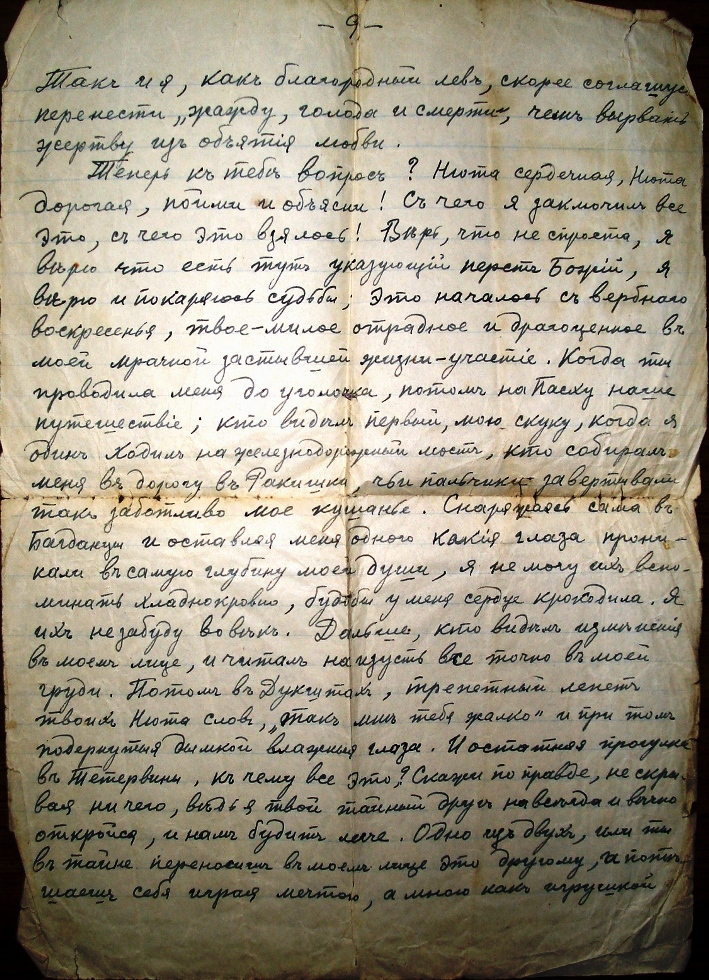 — 9 —
Такъ и я, какъ благородный левъ, скорее соглашусь
перенести „жажду, голода и смерти", чемъ вырвать
жертву изъ объятія любви.
Теперь къ тебѣ вопросъ? Нюта сердечная, Нюта
дорогая, пойми и объясни! Съ чего я заключилъ все
это, съ чего это взялось! Вѣрь, что не спроста, я
вѣрю что есть тутъ указующій перстъ Божій, я
вѣрю и покаряюсь судьбы; это началось съ вербнаго
воскресенья, твое-милое отрадное и драгоценное въ
моей мрачной застывшей жизни-участіе. Когда ты
проводила меня до уголочка, потомъ на Пасху наше
путешествіе; кто видѣлъ первый, мою скуку, когда я
одинъ ходилъ на железнодорожный мостъ, кто собиралъ
меня въ дорогу въ Ракишки, чьи пальчики завертывали
такъ заботливо мое кушанье. Снаряжаясь сама въ
Багданцы и оставляя меня одного какія глаза прони-
кали въ самую глубину моей души, я не могу ихъ вспо-
минать хладнокровно, будьбы у меня сердце крокодила. Я
ихъ незабуду вовѣкъ. Дальше, кто видѣлъ измѣненія
въ моемъ лице, и читалъ наизусть все точно въ моей
груди. Потомъ въ Дукштахъ, трепетный лепетъ
твоихъ Нюта словъ, „такъ мнѣ тебя жалко" и при томъ
подернутыя дымкой влажныя глаза. И остатняя прогулка
въ Тетервины, къ чему все это? Скажи по правде, не скры-
вая ничего, вѣдь я твой тайный другъ навсегда и вѣчно
откройся, и намъ будитъ легче. Одно изъ двухъ, или ты
въ тайне переносишь въ моемъ лице это другому, и потѣ-
шаешь себя играя мечтою, а мною какъ игрушкой